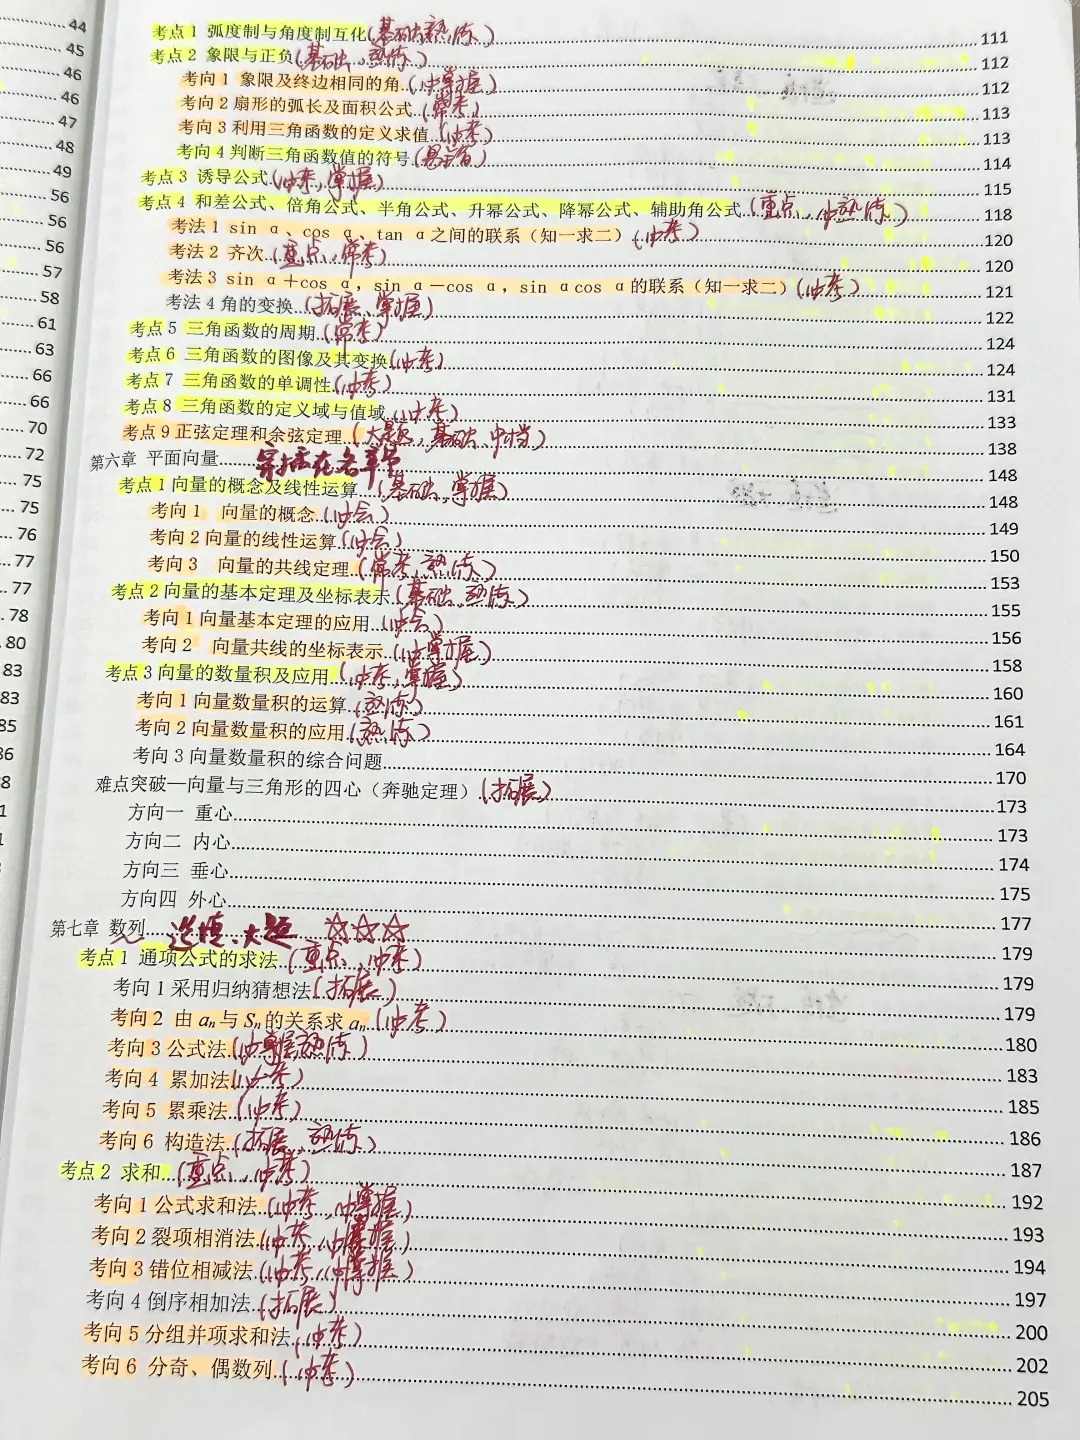 44
45
46
46
47
48
49
56
56
56
57
58
61
63
66
66
70
72
75
75
76
77
77
78
80
83
83
85
考点1 弧度制与角度制互化(基础、熟练)111
考点2 象限与正负(基础、熟练)112
考向1 象限及终边相同的角(必掌握)112
考向2 扇形的弧长及面积公式(常考)113
考向3 利用三角函数的定义求值(必考)113
考向4 判断三角函数值的符号 114
考点3 诱导公式(必考、掌握)115
考点4 和差公式、倍角公式、半角公式、升幂公式、降幂公式、辅助角公式(重点、必熟练)118
考法1 sin α、cos α、tan α之间的联系(知一求二)(必考)120
考法2 齐次(重点、常考)120
考法3 sin α+cos α, sin α-cos α, sin αcos α的联系(知一求二)(必考)121
考法4 角的变换(拓展、掌握)122
考点5 三角函数的周期(常考)124
考点6 三角函数的图像及其变换(必考)124
考点7 三角函数的单调性(必考)131
考点8 三角函数的定义域与值域(必考)133
考点9 正弦定理和余弦定理(大题、基础、中档)138
第六章 平面向量 穿插在各章节 148
考点1 向量的概念及线性运算(基础、掌握)148
考向1 向量的概念(必会)149
考向2 向量的线性运算(必会)150
考向3 向量的共线定理(常考、熟练)153
考点2 向量的基本定理及坐标表示(基础、熟练)155
考向1 向量基本定理的应用(必会)156
考向2 向量共线的坐标表示(必掌握)158
考点3 向量的数量积及应用(必考、掌握)160
考向1 向量数量积的运算(熟练)161
考向2 向量数量积的应用(熟练)164
考向3 向量数量积的综合问题 170
难点突破—向量与三角形的四心(奔驰定理)(拓展)173
方向一 重心 173
方向二 内心 174
方向三 垂心 175
方向四 外心 177
第七章 数列 选填、大题 ☆☆☆ 179
考点1 通项公式的求法(重点、必考)179
考向1 采用归纳猜想法(拓展)179
考向2 由aₙ与Sₙ的关系求aₙ(必考)180
考向3 公式法(必掌握熟练)183
考向4 累加法(必考)185
考向5 累乘法(必考)186
考向6 构造法(拓展、熟练)187
考点2 求和(重点、必考)192
考向1 公式求和法(必考、必掌握)193
考向2 裂项相消法(必考、必掌握)194
考向3 错位相减法(必考、必掌握)197
考向4 倒序相加法(拓展)200
考向5 分组并项求和法(必考)202
考向6 分奇、偶数列(必考)205